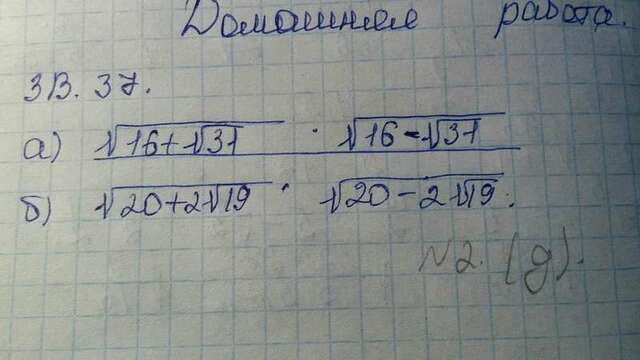 Домашняя работа.
ЗВ. 37.
а) √16+√31 · √16-√31
б) √20+2√19 · √20-2√19.
N2. (д).